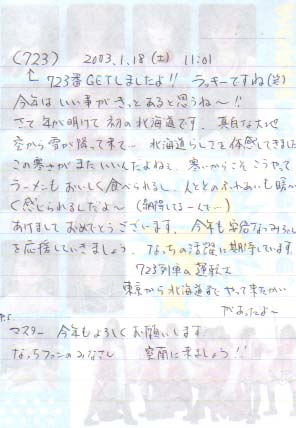 (723) 2003.1.18(土) 11:01
723番GETしましたよ!! ラッキーですね(笑)
今年はいい事がきっとあると思うね〜!!
さて年が明けて初の北海道です。真白な大地
空から雪が降って来て… 北海道らしさを体感してきました
この寒さがまたいいんだよねえ。寒いからこそこうやって
ラーメンもおいしく食べられるし、人とのふれあいも暖か
く感じられるしだよ〜(納得してる一人で…)
あけましておめでとうございます。今年も安倍なつみちゃん
を応援していきましょう。なっちの活躍に期待しています
723列車の運転士
東京から北海道までやって来たかい
があったよ〜
P.S.
マスター 今年もよろしくお願いします。
なっちファンのみなさん 空雨に来ましょう!!